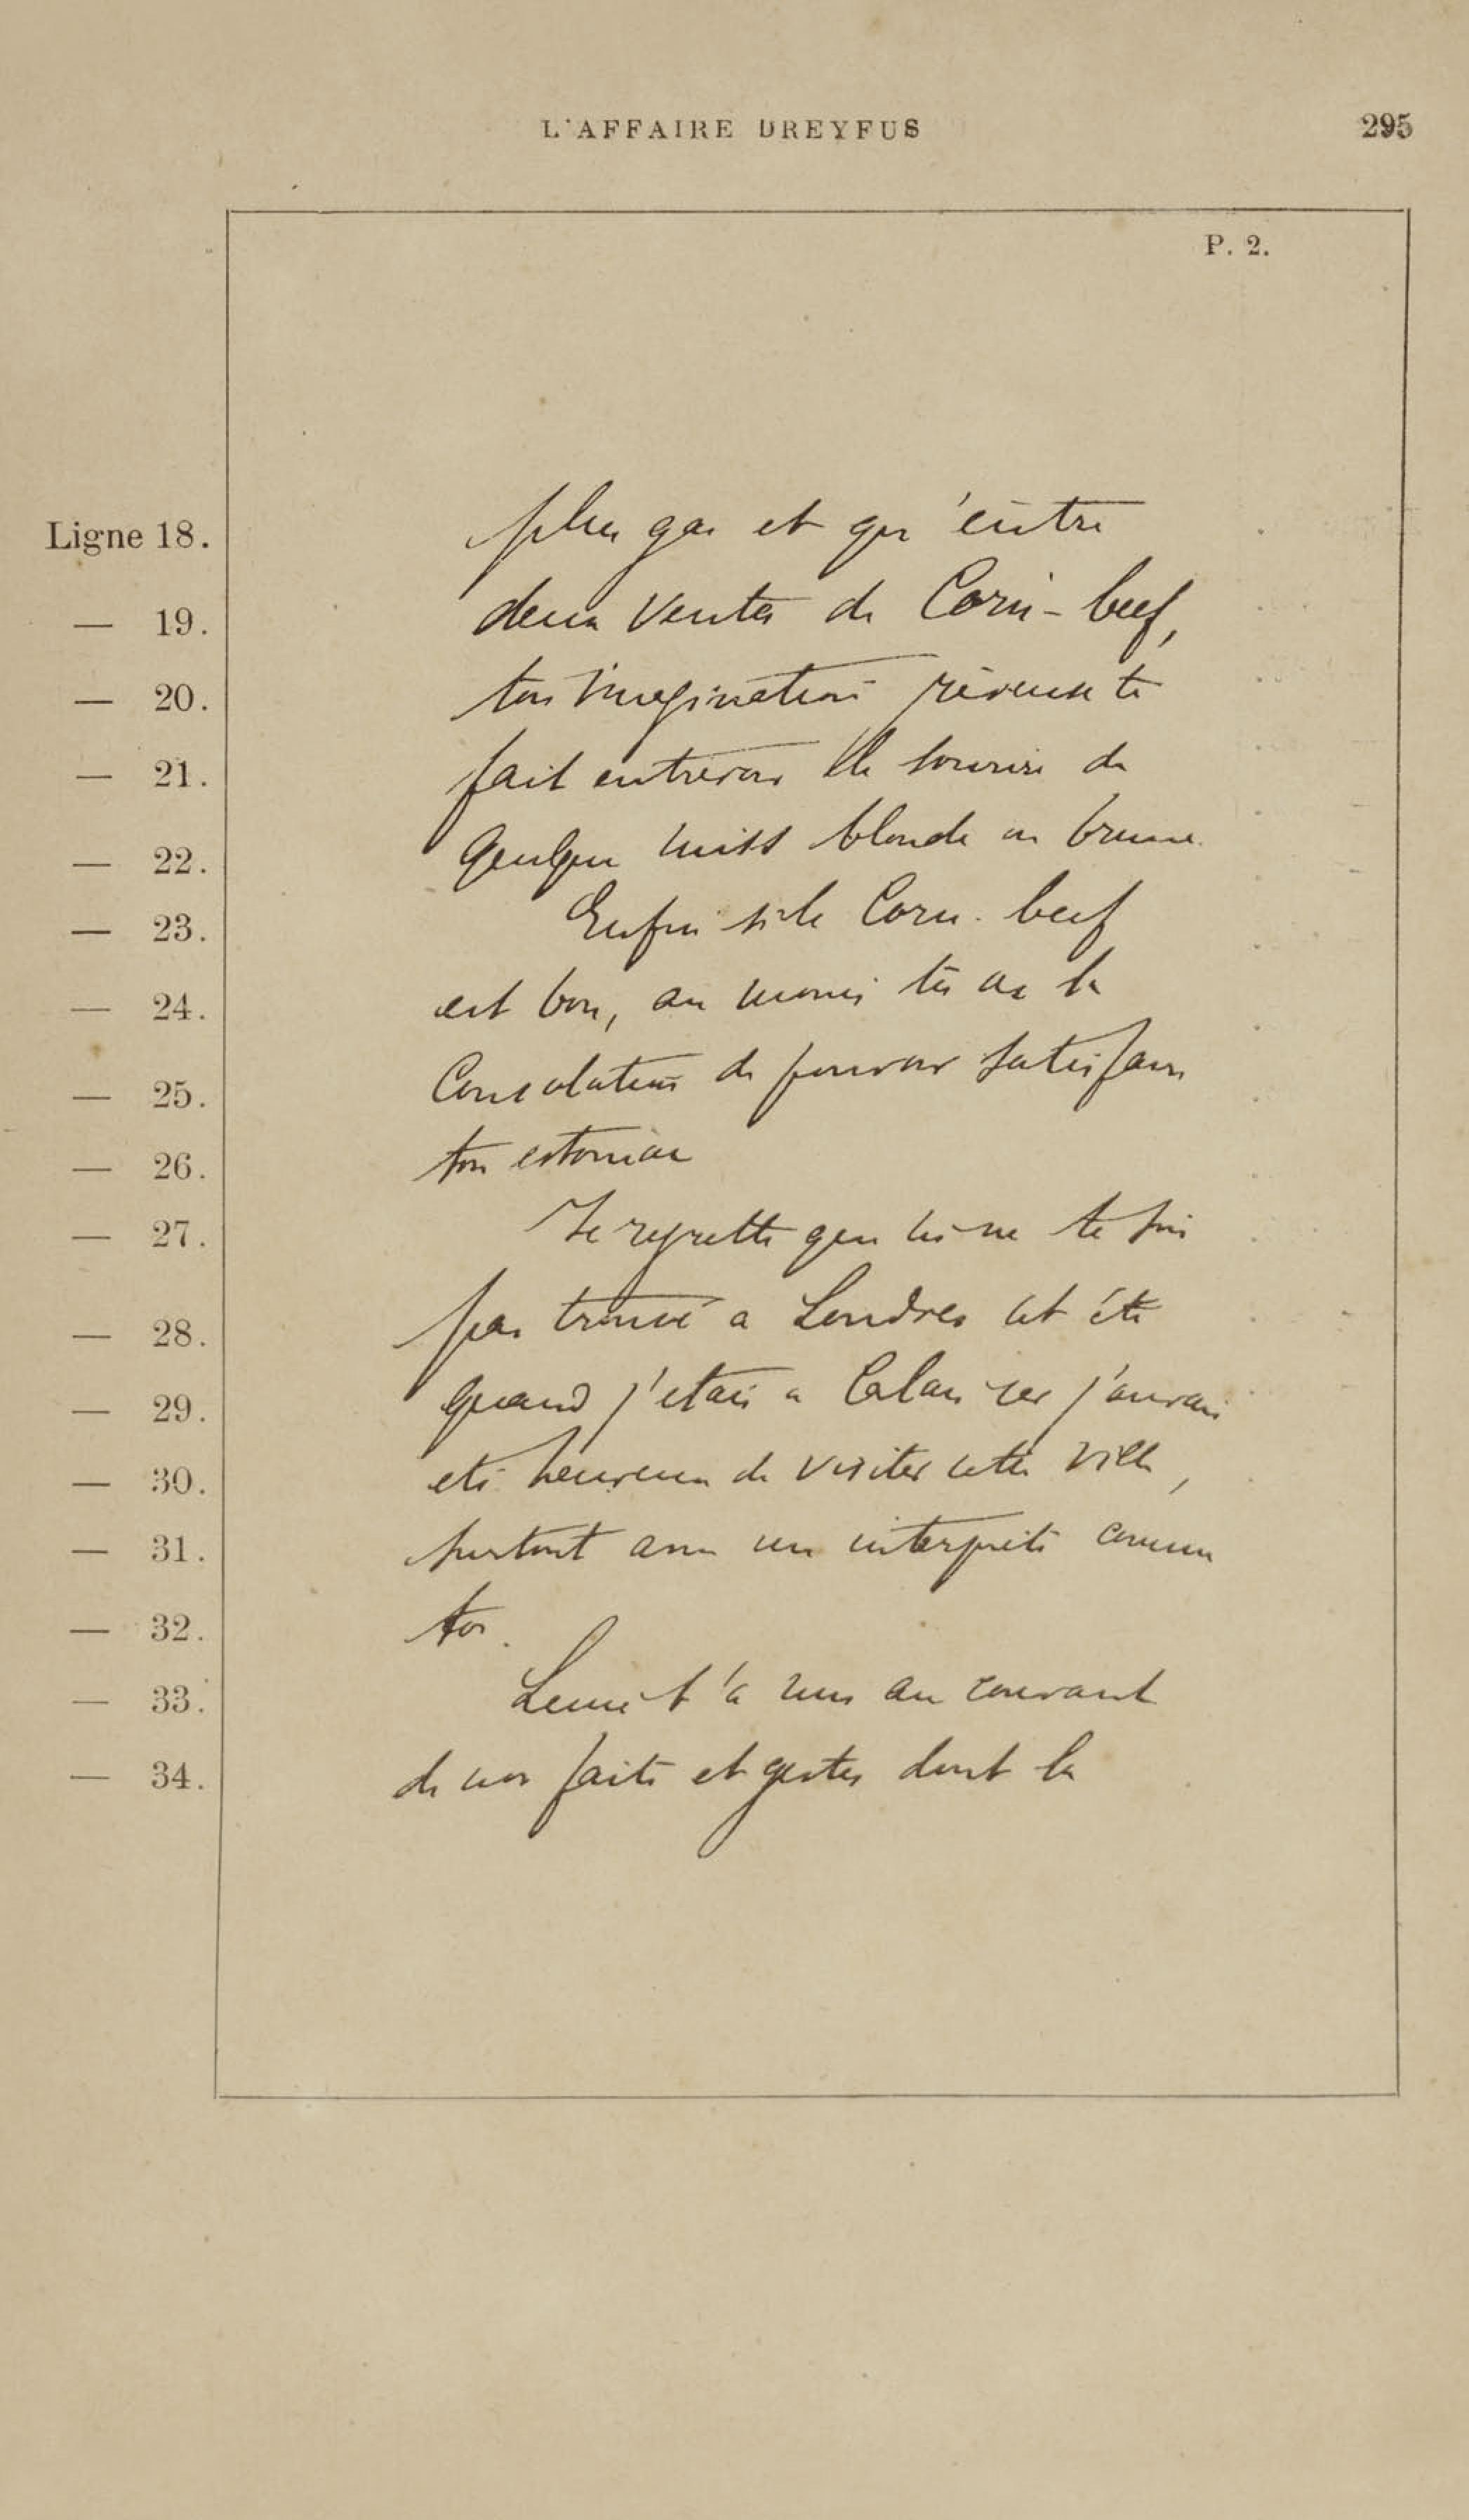 L'AFFAIRE DREYFUS 295
P. 2.
Ligne 18. plus gai et qu'entre
— 19. deux ventes de Corn-beef,
— 20. ton imagination rêveuse te
— 21. fait entrevoir le sourire de
— 22. quelque miss blonde ou brune.
— 23. Enfin si le Corn-beef
— 24. est bon, au moins tu as la
— 25. Consolation de pouvoir satisfaire
— 26. ton estomac
— 27. Je regrette que tu ne te sois
— 28. pas trouvé a Londres cet été
— 29. quand j'etais a Calais car j'aurais
— 30. eté heureux de visiter cette ville,
— 31. surtout avec un interprète comme
— 32. toi.
— 33. t'a mis au courant
— 34. de nos faits et gestes dont la